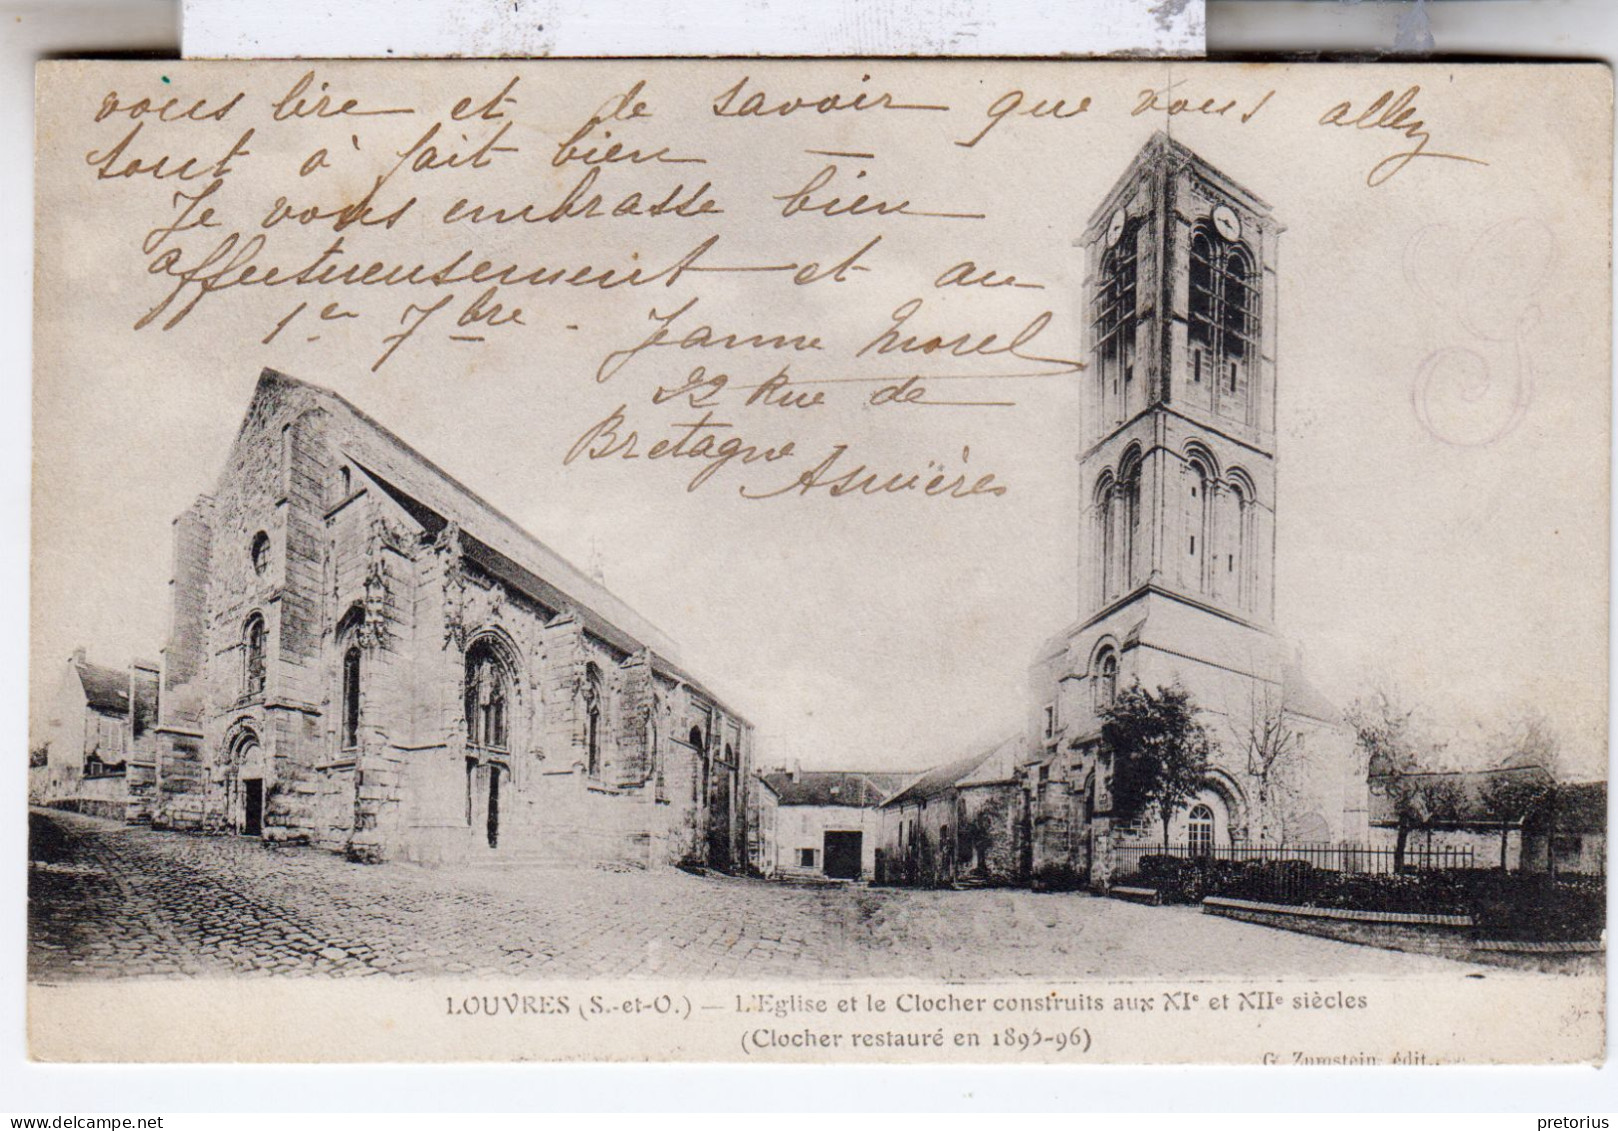 vous lire et de savoir que vous allez
tout à fait bien —
Je vous embrasse bien
affectueusement et au
1er 7bre. Jeanne Morel
22 Rue de
Bretagne
Asnières
LOUVRES (S.-et-O.) — L'Eglise et le Clocher construits aux XIe et XIIe siècles
(Clocher restauré en 1895-96)
G. Zumstein, édit.
pretorius